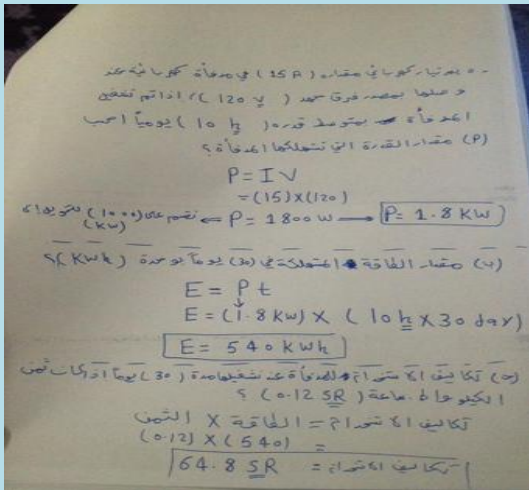 ٥- يمر تيار كهربائي مقداره (15A) في مدفأة كهربائية عند
وصلها بمصدر فرق جهد (120 V)، إذا تم تشغيل
المدفأة بمتوسط قدره (10 h) يومياً احسب
(P) مقدار القدرة التي تستهلكها المدفأة؟
P = I V
= (15) X (120)
P = 1800 W → P = 1.8 KW ← نقسم على (1000) للتحويل
(KW)
(ب) مقدار الطاقة المستهلكة في (30) يوماً بوحدة (KWh)؟
E = P t
E = (1.8 KW) X (10 h X 30 day)
E = 540 KWh
(ج) تكاليف الاستخدام للمدفأة عند تشغيلها مدة (30) يوماً إذا كان ثمن
الكيلو واط. ساعة (0.12 SR)؟
تكاليف الاستخدام = الطاقة X الثمن
= (540) X (0.12)
تكاليف الاستخدام = 64.8 SR